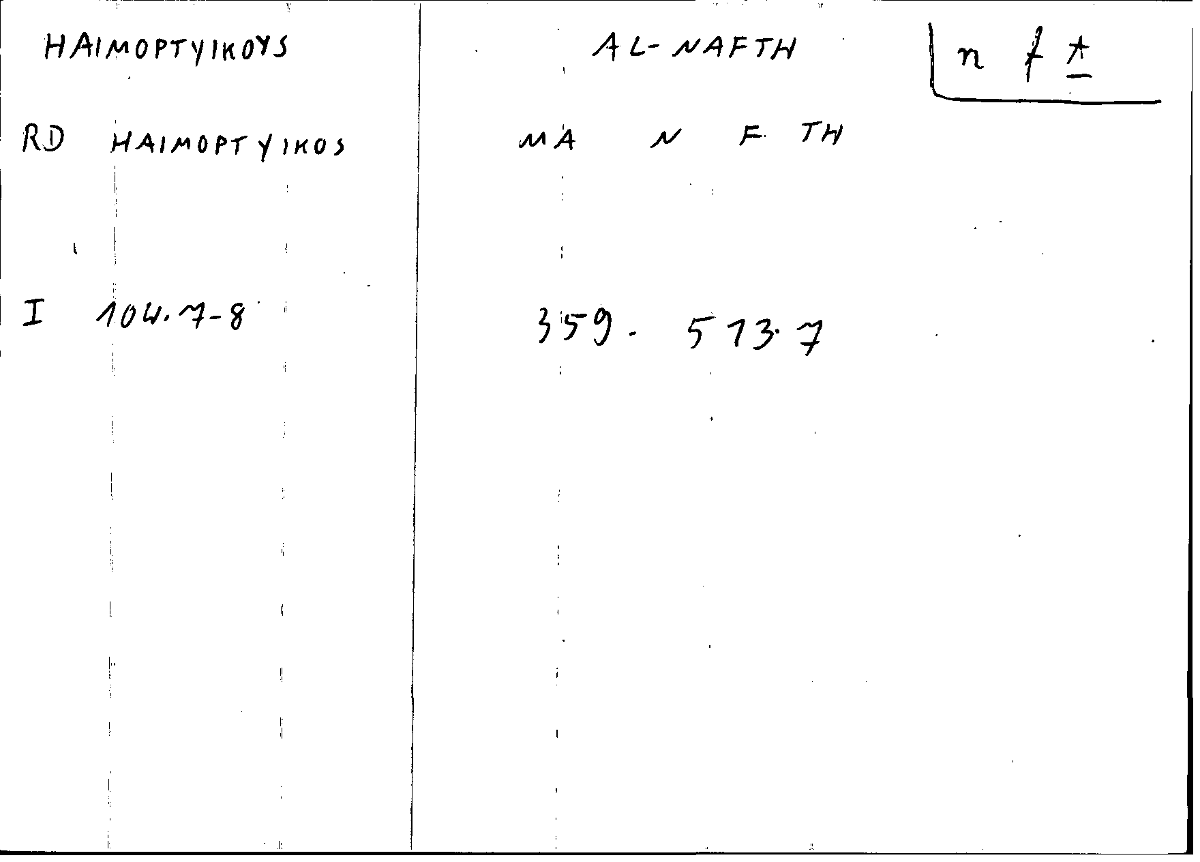 HAIMOPTYIKOYS AL-NAFTH n f ṯ
RD HAIMOPTYIKOS MA N F. TH
I 104.7-8 359. 513.7